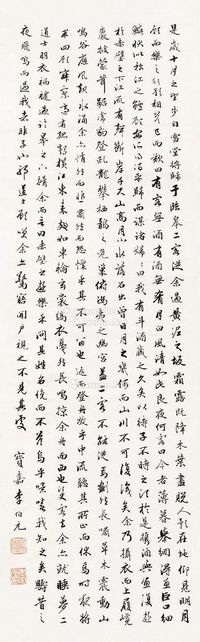 是歲十月之望步自雪堂將歸于臨皋二客從余過黃泥之坂霜露既降木葉盡脫人影在地仰見明月
顧而樂之行歌相答已而歎曰有客無酒有酒無肴月白風清如此良夜何客曰今者薄暮舉網得魚巨口細
鱗狀似松江之鱸顧安所得酒乎歸而謀諸婦婦曰我有斗酒藏之久矣以待子不時之須於是攜酒與魚復遊
於赤壁之下江流有聲斷岸千尺山高月小水落石出曾日月之幾何而山川不可復識矣余乃攝衣而上履巉
巖披蒙茸踞虎豹登虬龍攀栖鶻之危巢俯馮夷之幽宮蓋二客不能從焉劃然長嘯草木震動山
鳴谷應風起水涌余亦悄然而悲肅然而恐凜乎其不可留也反而登舟放乎中流聽其所止而休焉時夜將
半四顧寂寥適有孤鶴橫江東來翅如車輪玄裳縞衣戛然長鳴掠余舟而西也須臾客去余亦就睡夢二
道士羽衣翩躚過臨皋之下揖余而言曰赤壁之遊樂乎問其姓名俛而不答嗚呼噫嘻我知之矣疇昔之
夜飛鳴而過我者非子也耶道士顧笑余亦驚寤開戶視之不見其處
寶嘉李伯元